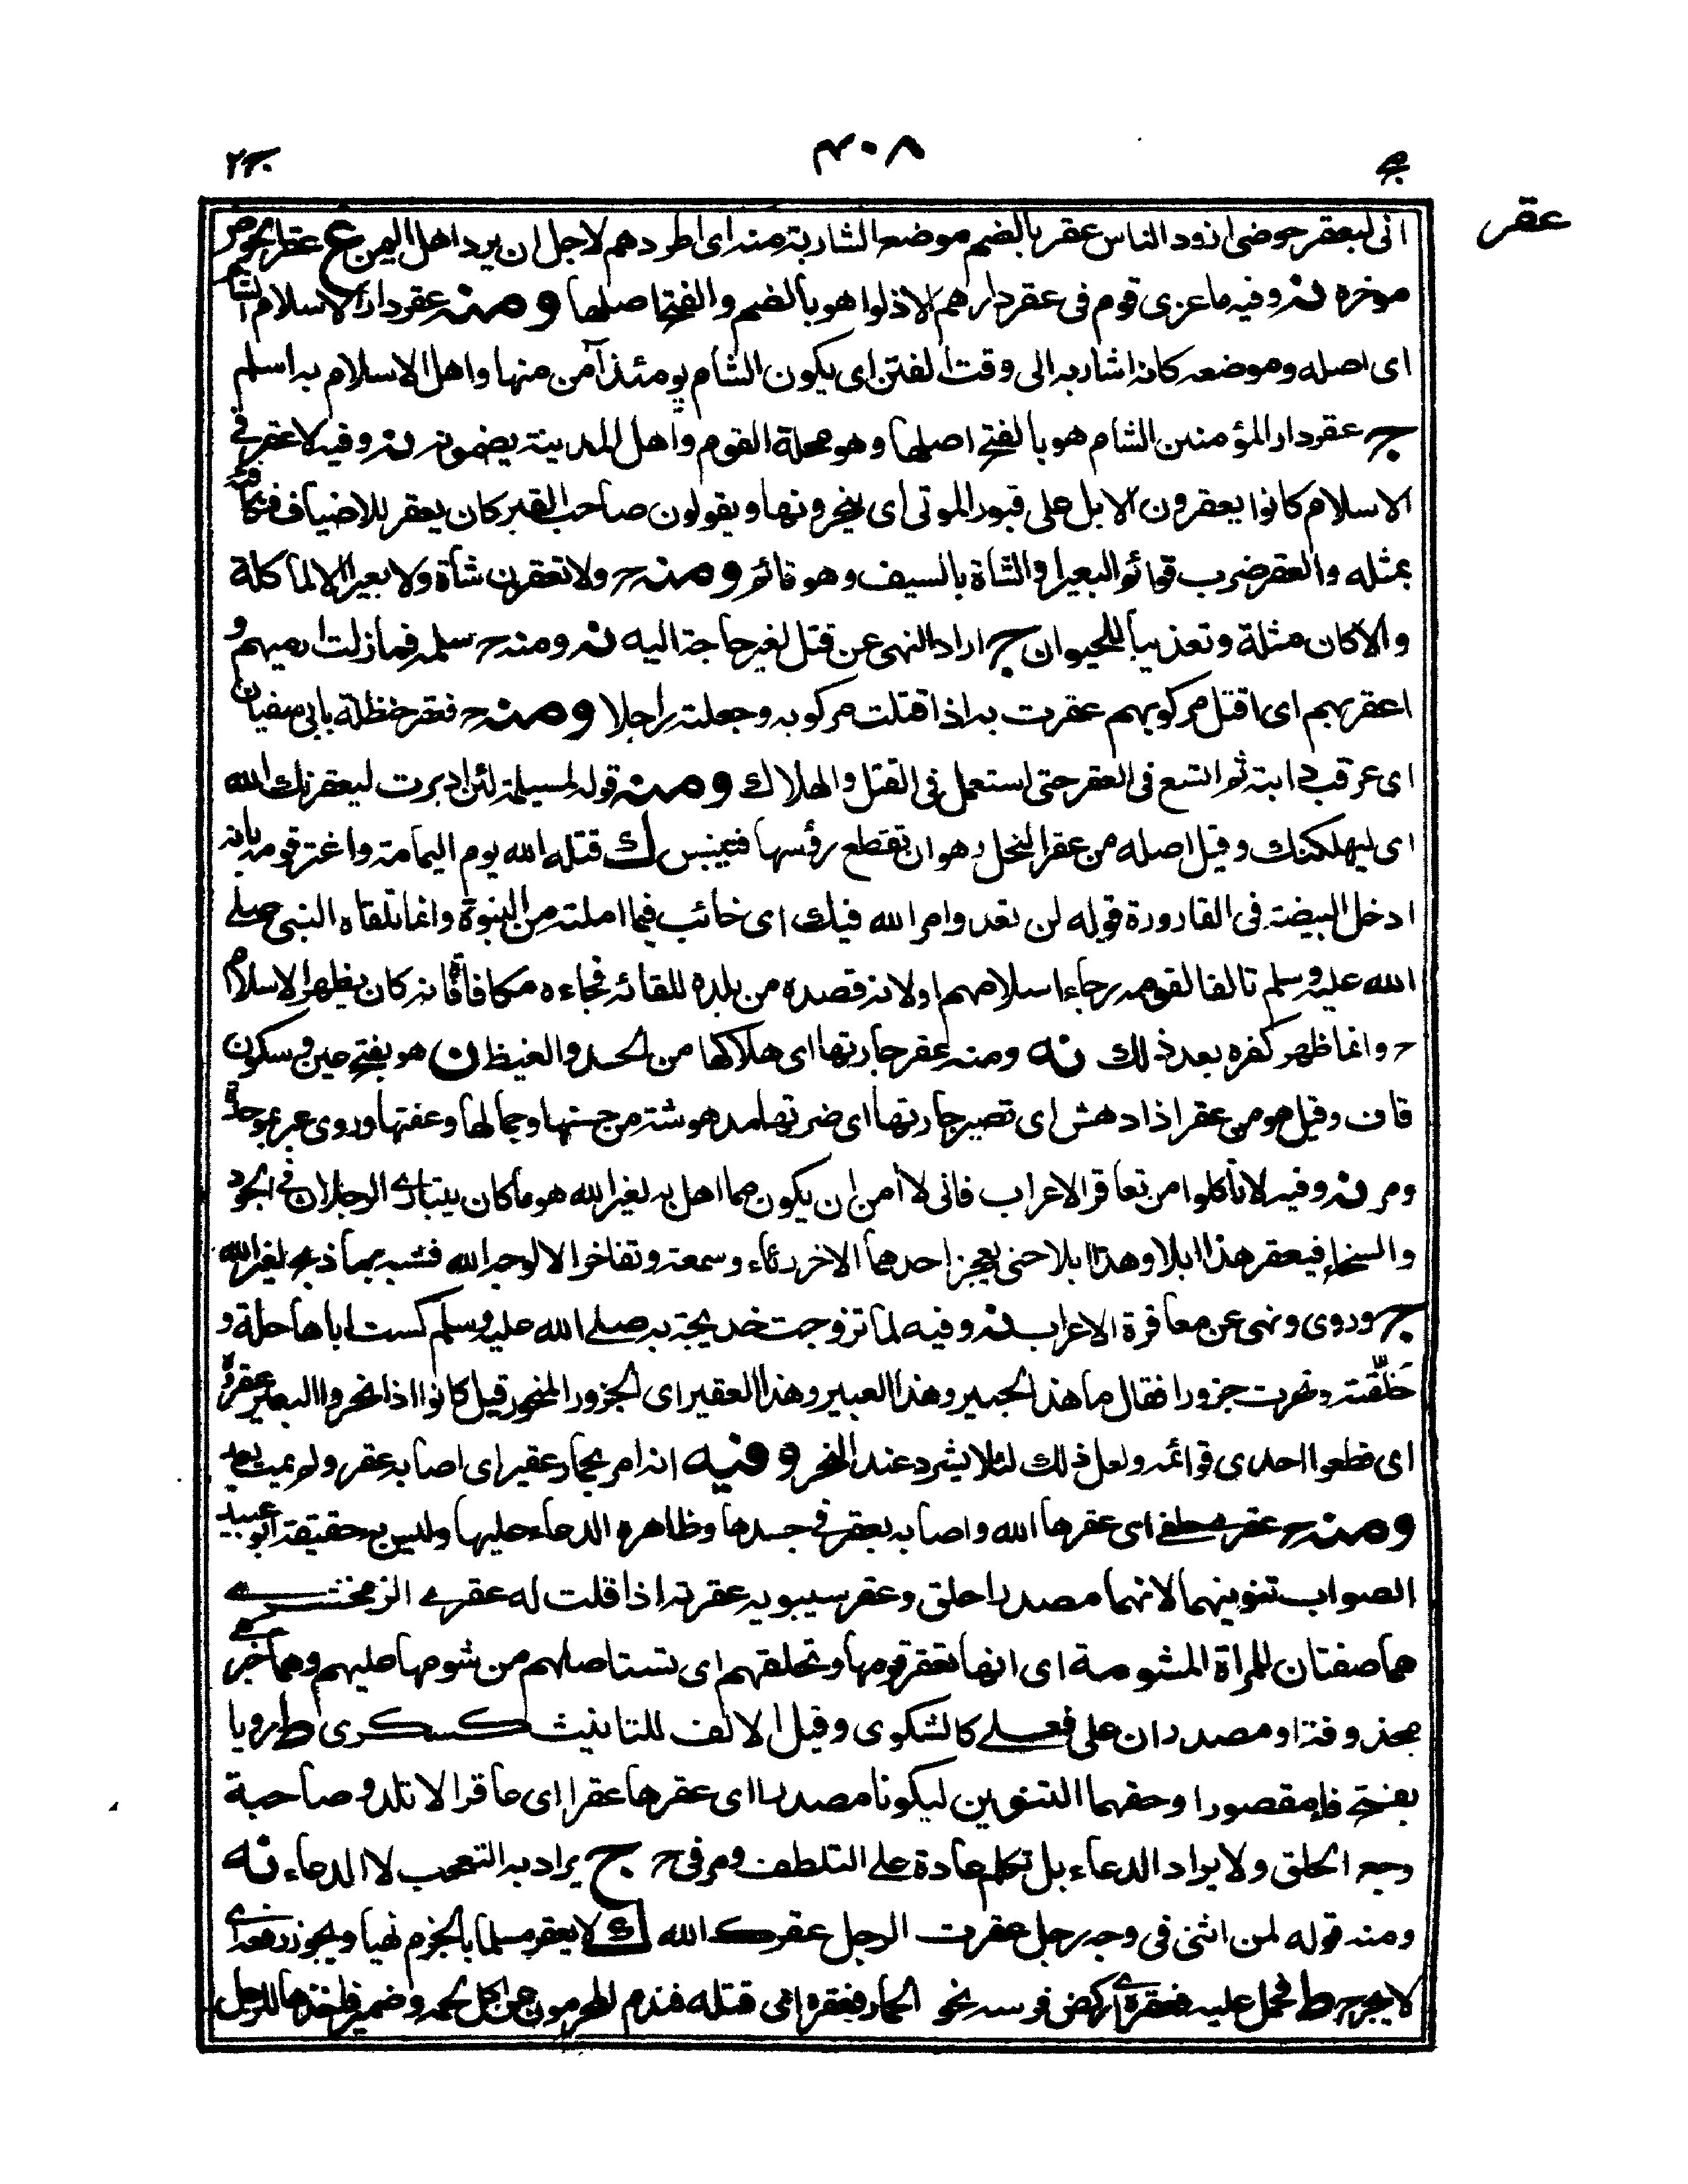 ج ٢
٤٠٨
عقر
انى لبعقر حوضى ازود الناس عقر بالضم موضع الشاربة منه اى اطردهم لاجل ان يرد اهل اليمن ع عقر الحوض
موخره نه وفيه ما غزى قوم فى عقر دارهم الا ذلوا هو بالضم والفتح اصلها ومنه عقر دار الاسلام الشام
اى اصله وموضعه كانه اشار به الى وقت الفتن اى يكون الشام يومئذ آمن منها واهل الاسلام به اسلم
ج عقر دار المؤمنين الشام هو بالفتح اصلها وهو محلة القوم واهل المدينة يضمونه نه وفيه لا عقر فى
الاسلام كانوا يعقرون الابل على قبور الموتى اى ينحرونها ويقولون صاحب القبر كان يعقر للاضياف فنكافئه
بمثله والعقر ضرب قوائم البعير او الشاة بالسيف وهو قائم ومنه ح ولا تعقرن شاة ولا بعيرا الا لماكلة
والا كان مثلة وتعذيبا للحيوان ج اراد النهى عن قتل لغير حاجة اليه نه ومنه ح سلمه فما زلت ارميهم و
اعقر بهم اى اقتل مركوبهم عقرت به اذا قتلت مركوبه وجعلته راجلا ومنه ح فعقر حنظلة بابى سفيان
اى عرقب دابته ثم اتسع فى العقر حتى استعمل فى القتل والهلاك ومنه قوله لمسيلمة لئن ادبرت ليعقرنك الله
اى ليهلكنك وقيل اصله من عقر النخل وهو ان تقطع رؤسها فتيبس ك قتله الله يوم اليمامة واغتر قومه بانه
ادخل البيضة فى القارورة قوله لن تعد وامر الله فيك اى خائب فيما املته من النبوة وانما تلقاه النبى صلے
الله عليه وسلم تالفا لقومه رجاء اسلامهم او لانه قصده من بلده للقائه فجاءه مكافاة فانه كان يظهر الاسلام
ح وانما ظهر كفره بعد ذلك نه ومنه عقر جارتها اى هلاكها من الحسد والغيظ ن هو بفتح عين وسكون
قاف وقيل هو من عقر اذا دهش اى تصير جارتها اى ضرتها مدهوشة من حسنها وجمالها وعفتها وروى عبر بموحدة
ومر نه وفيه لا تاكلوا من تعاقر الاعراب فانى لا آمن ان يكون مما اهل به لغير الله هو ما كان يتبارے الرجلان فى الجود
والسخاء فيعقر هذا ابلا وهذا ابلا حتى يعجز احدهما الاخر رئاء وسمعة وتفاخرا لا لوجه الله فشبه بما ذبح لغير الله
ج وروى ونهى عن معاقرة الاعراب نه وفيه لما تزوجت خديجة به صلے الله عليه وسلم كست اباها حلة و
خلّقته ونحرت جزورا فقال ما هذا الحبير وهذا العبير وهذا العقير اى الجزور المنحور قيل كانوا اذا نحروا البعير عقروه
اى قطعوا احدى قوائمه ولعل ذلك لئلا يشرد عند النحر وفيه انه مر بحمار عقير اى اصابه عقر ولم يمت بعد
ومنه ح عقرى حلقى اى عقرها الله واصابه بعقر فى جسدها وظاهره الدعاء عليها وليس بحقيقة ابو عبيد
الصواب تنوينهما لانهما مصدرا حلق وعقر سيبويه عقرته اذا قلت له عقرے الزمخشرے
هما صفتان للمراة المشومة اى انها تعقر قومها وتحلقهم اى تستاصلهم من شومها عليهم وهما خبر
محذوفة او مصدران على فعلے كالشكوى وقيل الالف للتانيث كسكرى ط رويا
بفتح فاء مقصورا وحقهما التنوين ليكونا مصدرا اى عقرها عقرا اى عاقرا لا تلد و صاحبة
وجع الحلق ولا يراد الدعاء بل تكلم عادة على التلطف ومر فى ح ج يراد به التعجب لا الدعاء نه
ومنه قوله لمن اثنى فى وجه رجل عقرت الرجل عقرك الله ك لا يعقر مسلما بالجزم نهيا ويجوز رفعه اے
لا يجرح ط فحمل عليه فعقره اے ركض فرسه نحو الحمار فعقره اى قتله فندم المحرمون من اكل لحمه وضمير فاخذها للرجل